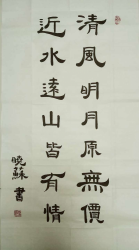 清風明月原無價
近水遠山皆有情
曉蘇書